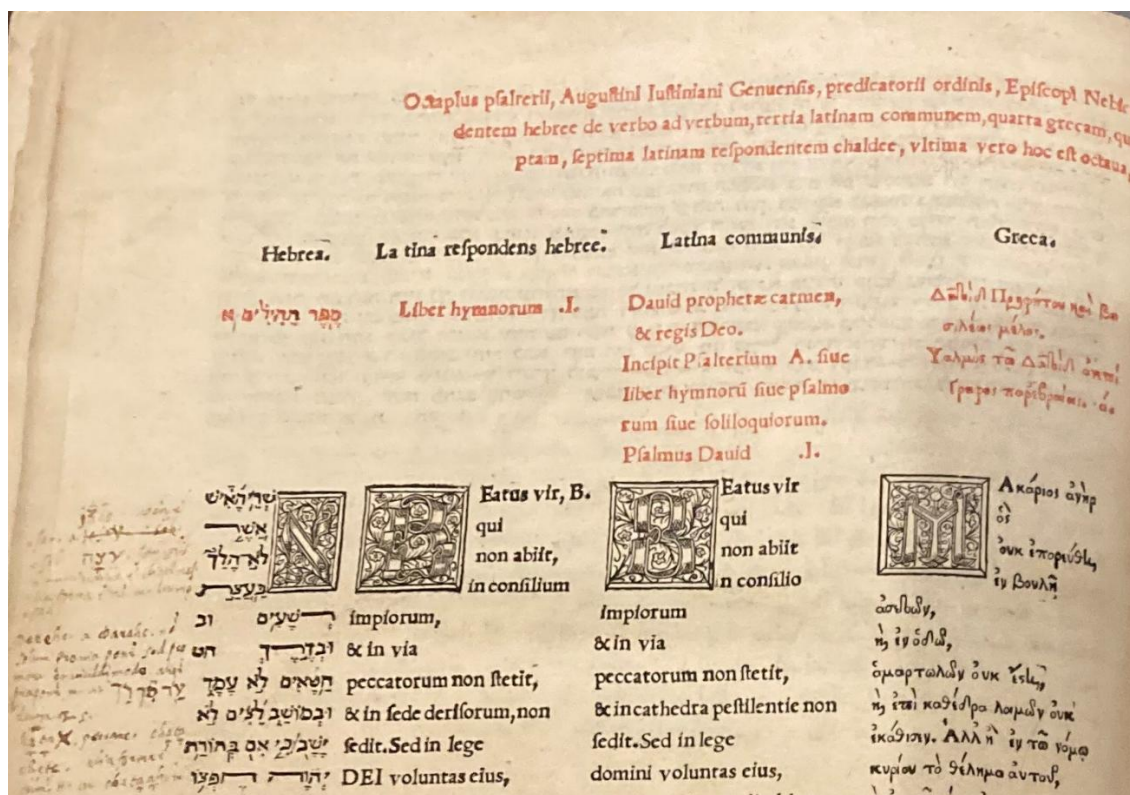 Octaplus pſalterii, Auguſtini Iuſtiniani Genuenſis, predicatorii ordinis, Epiſcopi
dentem hebree de verbo ad verbum, tertia latinam communem, quarta grecam,
ptam, ſeptima latinam reſpondentem chaldee, vltima vero hoc eſt octaua,
Hebrea.
סֵפֶר תְּהִילִים א
אשְׁרֵי הָאִישׁ
אֲשֶׁר
לֹא הָלַךְ
בַּעֲצַת
רְשָׁעִים וב
וּבְדֶרֶךְ חט
חַטָּאִים לֹא עָמָד
וּבְמוֹשַׁב לֵצִים לֹא
יָשָׁב: כִּי אִם בְּתוֹרַת
יְהוָה חֶפְצוֹ
La tina reſpondens hebree.
Liber hymnorum .I.
BEatus vir, B.
qui
non abiit,
in conſilium
impiorum,
& in via
peccatorum non ſtetit,
& in ſede deriſorum, non
ſedit. Sed in lege
DEI voluntas eius,
Latina communis.
Dauid prophetæ carmen,
& regis Deo.
Incipit Pſalterium A. ſiue
liber hymnorū ſiue pſalmo
rum ſiue ſoliloquiorum.
Pſalmus Dauid .I.
BEatus vir
qui
non abiit
n conſilio
impiorum
& in via
peccatorum non ſtetit,
& in cathedra peſtilentie non
ſedit. Sed in lege
domini voluntas eius,
Greca.
Δαβὶδ Προφήτου καὶ βα
σιλέως μέλος.
Ψαλμὸς τῶ Δαβὶδ ἀνεπί
γραφος παρ᾽ἑβραίοις. α.
ΜΑκάριος ἀνὴρ
ὃς
ὀυκ ἐπορεύθη,
ἐν βουλῆ
ἀσεβῶν,
κὴ ἐν ὁδῶ,
ἁμαρτωλῶν ουκ ἔστη,
κὴ ἐπὶ καθέδρα λοιμῶν ουκ
ἐκάθισεν. Αλλ᾽ἢ ἐν τῶ νόμω
κυρίου τὸ θέλημα ἀυτοῦ,